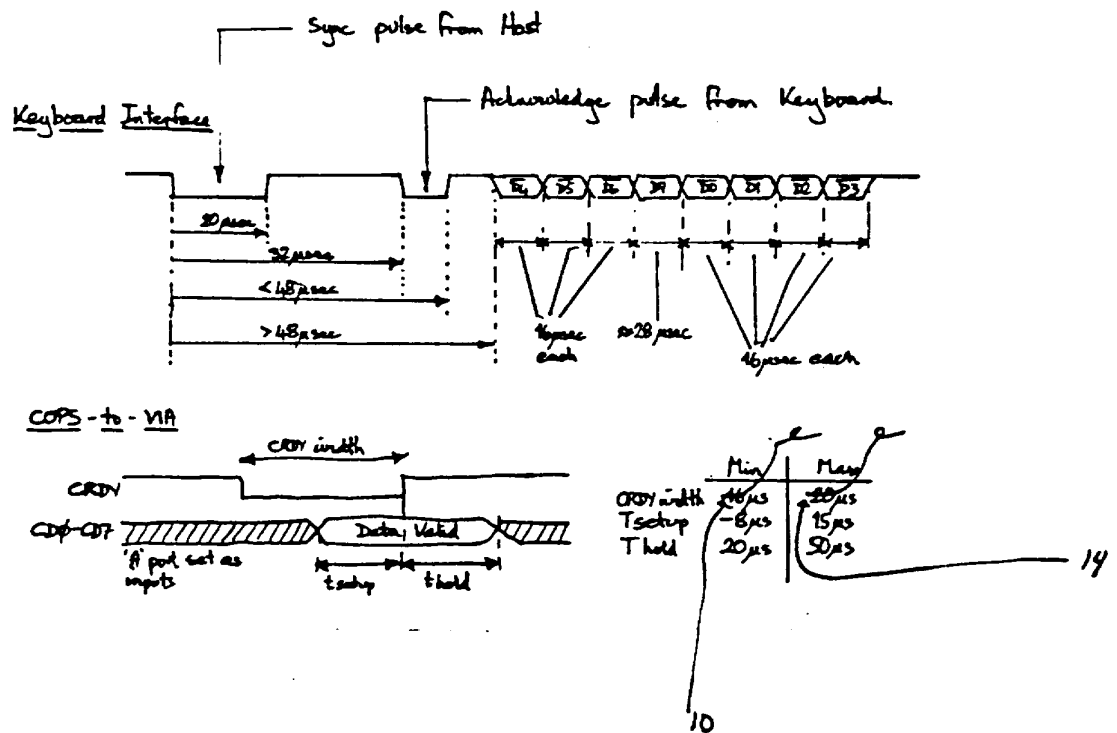 Sync pulse from Host
Acknowledge pulse from Keyboard.
Keyboard Interface
D4 D5 D6 D7 D0 D1 D2 D3
20 μsec
32 μsec
< 48 μsec
> 48 μsec
16 μsec each
≈28 μsec
16 μsec each
COPS-to-VIA
CRDY width
CRDY
CDØ-CD7
Data Valid
'A' port set as inputs
tsetup
thold
Min Max
CRDY width 16 μs 20 μs
Tsetup -8 μs 15 μs
Thold 20 μs 50 μs
14
10